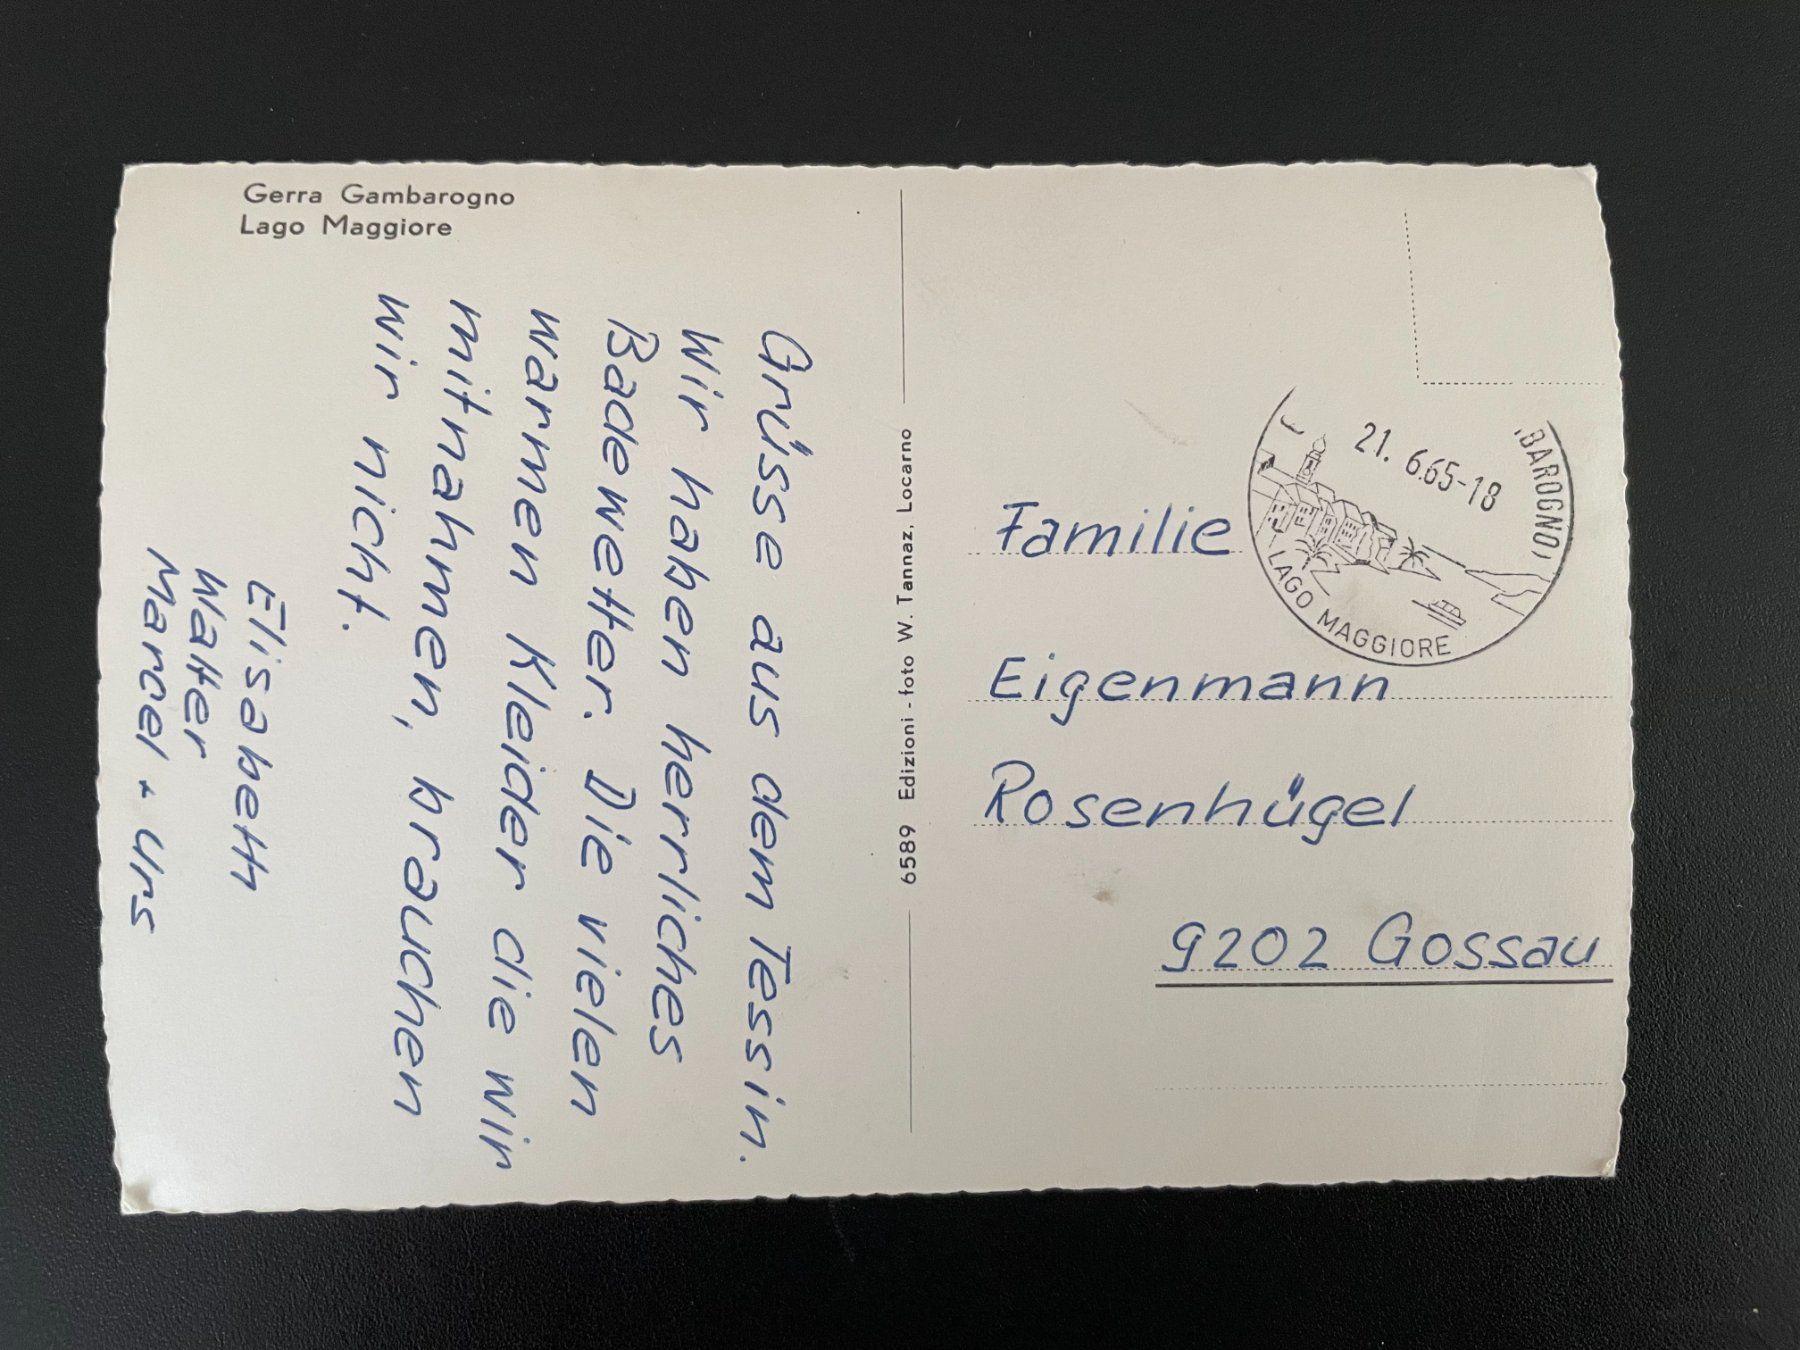 Gerra Gambarogno
Lago Maggiore
Grüsse aus dem Tessin.
Wir haben herrliches
Badewetter. Die vielen
warmen Kleider die wir
mitnahmen, brauchen
wir nicht.
Elisabeth
Walter
Marcel + Urs
6589 Edizioni - foto W. Tannaz, Locarno
21. 6.65-18
BAROGNO)
LAGO MAGGIORE
Familie
Eigenmann
Rosenhügel
9202 Gossau